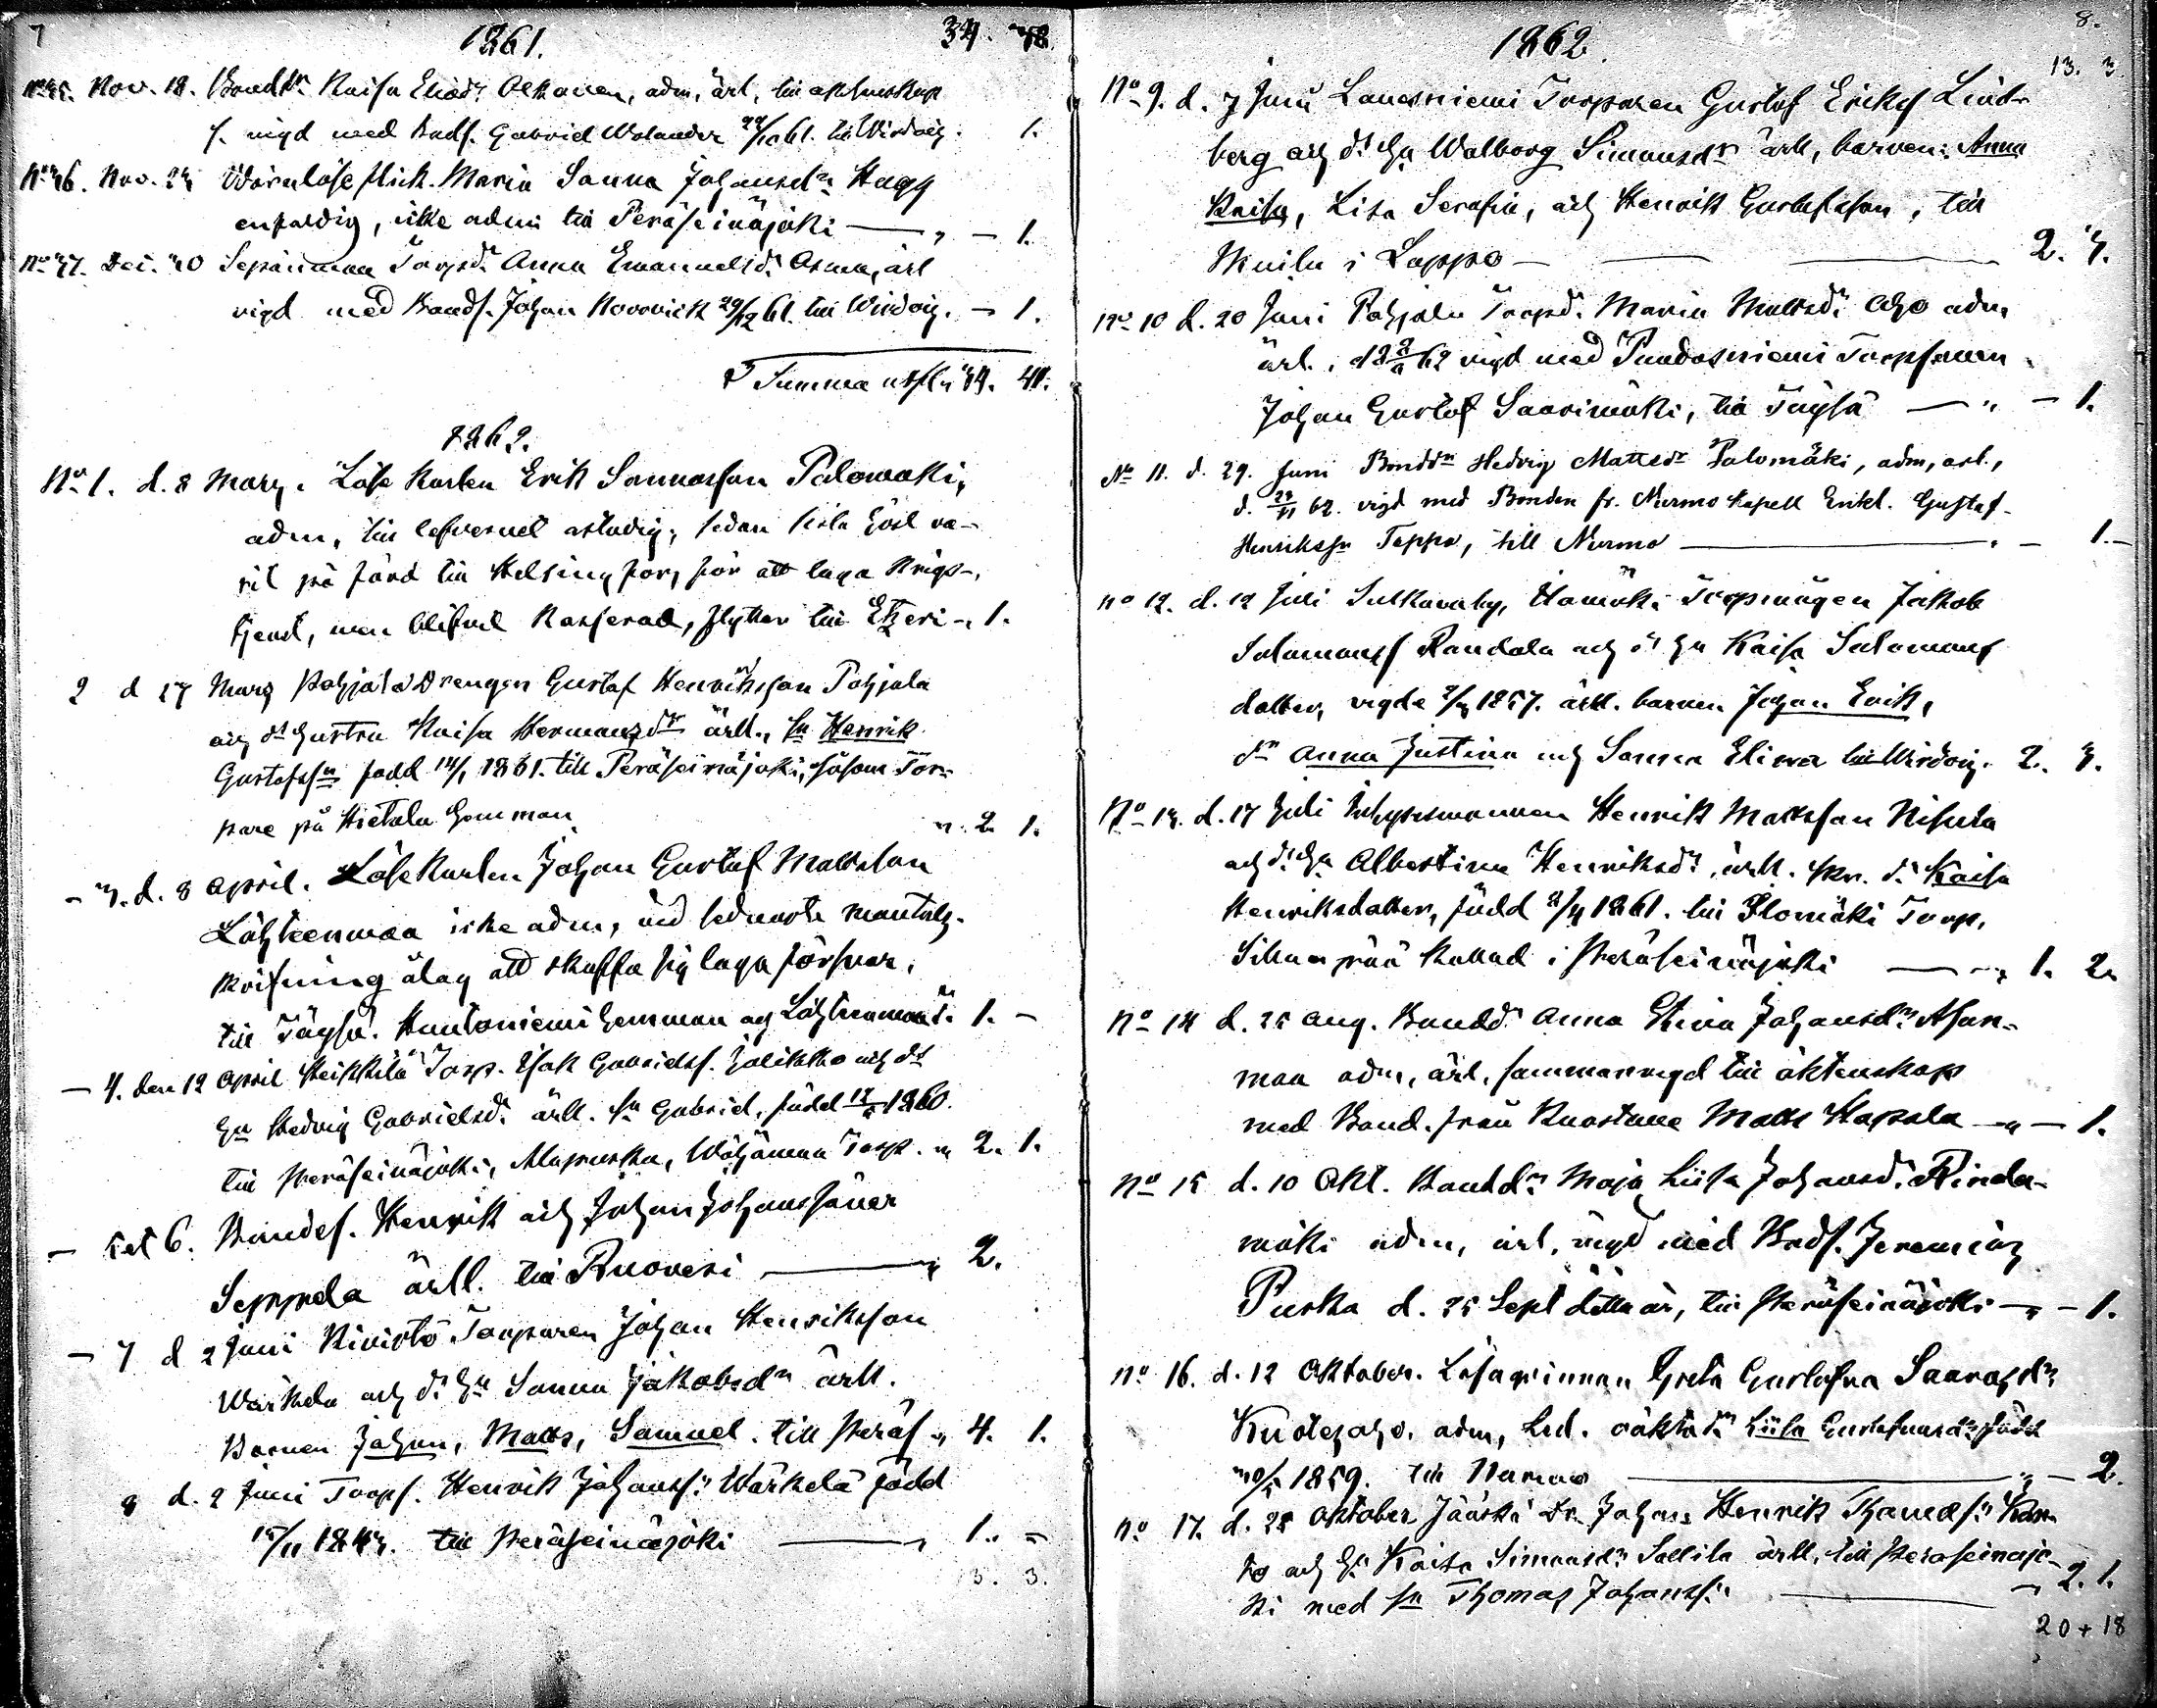 7
1861. 34. 48.
No 45. Nov. 18. Bondd:r Kaisa Eliæd:r Alkanen, adm, ärl, till äktenskap
f. vigd med Bndf. Gabriel Wolander 29/12 61. till Wirdois. 1.
No 46. Nov. 24 Wärnlöse flick. Maria Sanna Johansd:r Hagg
enfaldig, icke adm. till Peräseinäjoki — " — 1.
No 47. Dec. 20 Sepänmaa Torpd:r Anna Emanuelsd:r Asma, ärl
vigd med Bondf. Johan Norrvick 29/12 61. till Wirdois. — 1.
Summa utfl. 34. 48.
1862.
No 1. d. 8 Mars. Löse Karlen Erik Sannasson Palomäki,
adm, till lefvernet ostadig, sedan sista höst va-
rit på färd till Helsingfors för att taga Krigs-
tjenst, men blifvit Kasserad, flyttar till Etzeri — 1.
2 d 27 Mars Pohjala Drengen Gustaf Henriksson Pohjala
och d:s hustru Kaisa Hermansd:r ärll., sn Henrik
Gustafss:n född 14/1 1861. till Peräseinäjoki, såsom Tor-
pare på Hietala hemman " 2. 1.
— 3. d. 8 April. Löse Karlen Johan Gustaf Mattsson
Lähteenmaa icke adm, vid sednaste mantals-
skrifning ålag att skaffa sig laga försvar,
till Töysä. Huntoniemi hemman och Lähteenmaa T. 1. —
— 4. den 12 April Heikkilä Torp. Isak Gabrielss. Jolikko och d:s
Hu Hedvig Gabrielsd:r ärll. Sn Gabriel, född 12/5 1860.
till Peräseinäjoki, Alapuska, Wäljämaa Torp. " 2. 1.
— 5 et 6. Bondes. Henrik och Johan Johanssöner
Seppela ärll. till Ruovesi — " 2.
— 7 d 2 Juni Kivistö Torparen Johan Henriksson
Wärkelä och d:s Hu Sanna Jakobsd:r ärll.
Barnen Johan, Matts, Samuel. till Peräs " 4. 1.
8 d. 2 Juni Torps. Henrik Johanss:n Wärkelä född
15/11 1843. till Peräseinäjoki — " 1. —
13. 3.
8.
1862.
13. 3
No 9. d. 7 Juni Lanesniemi Torparen Gustaf Erikss Lind-
berg och d:s Hu Walborg Simonsd:r ärll, barnen: Anna
Kaisa, Lisa Serafia, och Henrik Gustafsson, till
Skuila i Lappo — 2. 3.
No 10 d. 20 Juni Pohjala Torpd:r Maria Mattsd:r Aho adm
ärl., 62 vigd med Pundasniemi Torpsonen
Johan Gustaf Saarimäki, till Töysä — " — 1.
No 11. d. 29. Juni Bondd:n Hedvig Mattsd:r Palomäki, adm, ärl.,
d. 29/11 62. vigd med Bonden fr. Nurmo Kapell Enkl. Gustaf
Henrikss:n Teppo, till Nurmo — " — 1. —
No 12. d. 12 Juli Sulkavakylä, Hamäki Torpmågen Jakob
Salomonss Randala och d:s Hu Kaisa Salomons
dotter, vigde 1857. ärll. barnen Johan Erik,
d:r Anna Justina och Sanna Elina till Wirdois. 2. 3.
No 13. d. 17 Juli Inhysesmannen Henrik Mattsson Nisula
och d:s Hu Albertina Henriksd:r, ärll. d:r Kaisa
Henriksdotter, född 8/4 1861. till Plomäki Torp,
Sillanpää Kallad i Peräseinäjoki — " 1. 2.
No 14 d. 25 Aug. Bondd:r Anna Stina Johansd:r Asun-
maa adm, ärl, sammanvigd till äktenskap
med Bond. från Kuortane Matts Haapala — " — 1.
No 15 d. 10 Okt. Bondd:r Maja Liisa Johansd:r Rinda-
mäki adm, ärl, vigd med Bndf. Jeremias
Puska d. 25 Sept detta år, till Peräseinäjoki — " — 1.
No 16. d. 12 Oktober. Löseqvinnan Greta Gustafva Saarasd:r
adm, Led. oäkta d:r Liisa Gustafvasd:r född
20/5 1859. till Nurmo — " — 2.
No 17. d. 25 Oktober Jääski Dr. Johan Henrik Thomass:n
ko och Hu Kaisa Simonsd:r Sallila ärll, till Peräseinäjo-
ki med sn Thomas Johanss:n — " 2. 1.
20 + 18